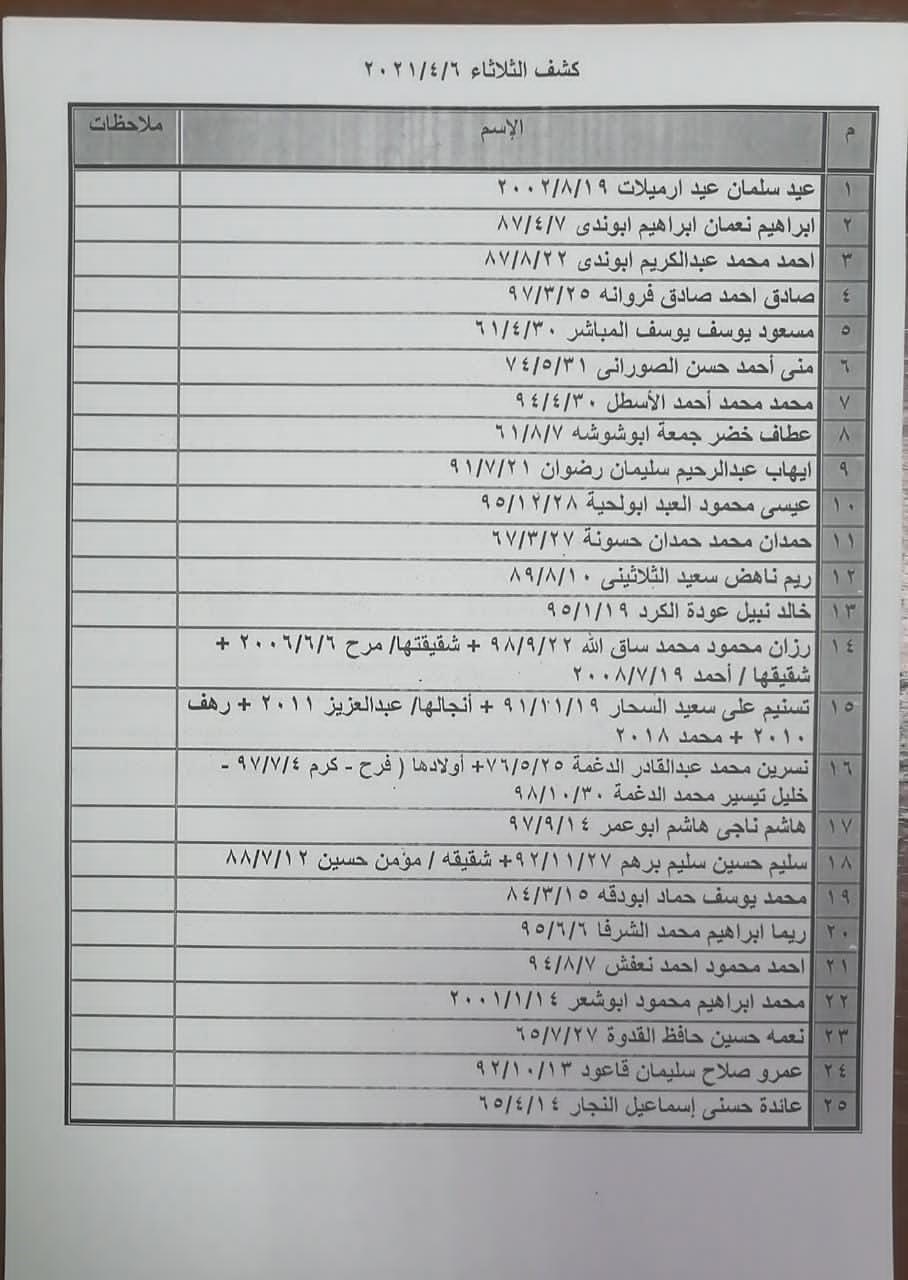 كشف الثلاثاء ٢٠٢١/٤/٦
م الإسم ملاحظات
١ عيد سلمان عيد ارميلات ٢٠٠٢/٨/١٩
٢ ابراهيم نعمان ابراهيم ابوندى ٨٧/٤/٧
٣ احمد محمد عبدالكريم ابوندى ٨٧/٨/٢٢
٤ صادق احمد صادق فروانه ٩٧/٣/٢٥
٥ مسعود يوسف يوسف المباشر ٦١/٤/٣٠
٦ منى أحمد حسن الصورانى ٧٤/٥/٣١
٧ محمد محمد أحمد الأسطل ٩٤/٤/٣٠
٨ عطاف خضر جمعة ابوشوشه ٦١/٨/٧
٩ ايهاب عبدالرحيم سليمان رضوان ٩١/٧/٢١
١٠ عيسى محمود العبد ابولحية ٩٥/١٢/٢٨
١١ حمدان محمد حمدان حسونة ٦٧/٣/٢٧
١٢ ريم ناهض سعيد الثلاثينى ٨٩/٨/١٠
١٣ خالد نبيل عودة الكرد ٩٥/١/١٩
١٤ رزان محمود محمد ساق الله ٩٨/٩/٢٢ + شقيقتها/ مرح ٢٠٠٦/٦/٦ +
شقيقها / أحمد ٢٠٠٨/٧/١٩
١٥ تسنيم على سعيد السحار ٩١/١١/١٩ + أنجالها/ عبدالعزيز ٢٠١١ + رهف
٢٠١٠ + محمد ٢٠١٨
١٦ نسرين محمد عبدالقادر الدغمة ٧٦/٥/٢٥+ أولادها ( فرح - كرم ٩٧/٧/٤ -
خليل تيسير محمد الدغمة ٩٨/١٠/٣٠
١٧ هاشم ناجى هاشم ابوعمر ٩٧/٩/١٤
١٨ سليم حسين سليم برهم ٩٢/١١/٢٧+ شقيقه / مؤمن حسين ٨٨/٧/١٢
١٩ محمد يوسف حماد ابودقه ٨٤/٣/١٥
٢٠ ريما ابراهيم محمد الشرفا ٩٥/٦/٦
٢١ احمد محمود احمد نعفش ٩٤/٨/٧
٢٢ محمد ابراهيم محمود ابوشعر ٢٠٠١/١/١٤
٢٣ نعمه حسين حافظ القدوة ٦٥/٧/٢٧
٢٤ عمرو صلاح سليمان قاعود ٩٢/١٠/١٣
٢٥ عائدة حسنى إسماعيل النجار ٦٥/٤/١٤